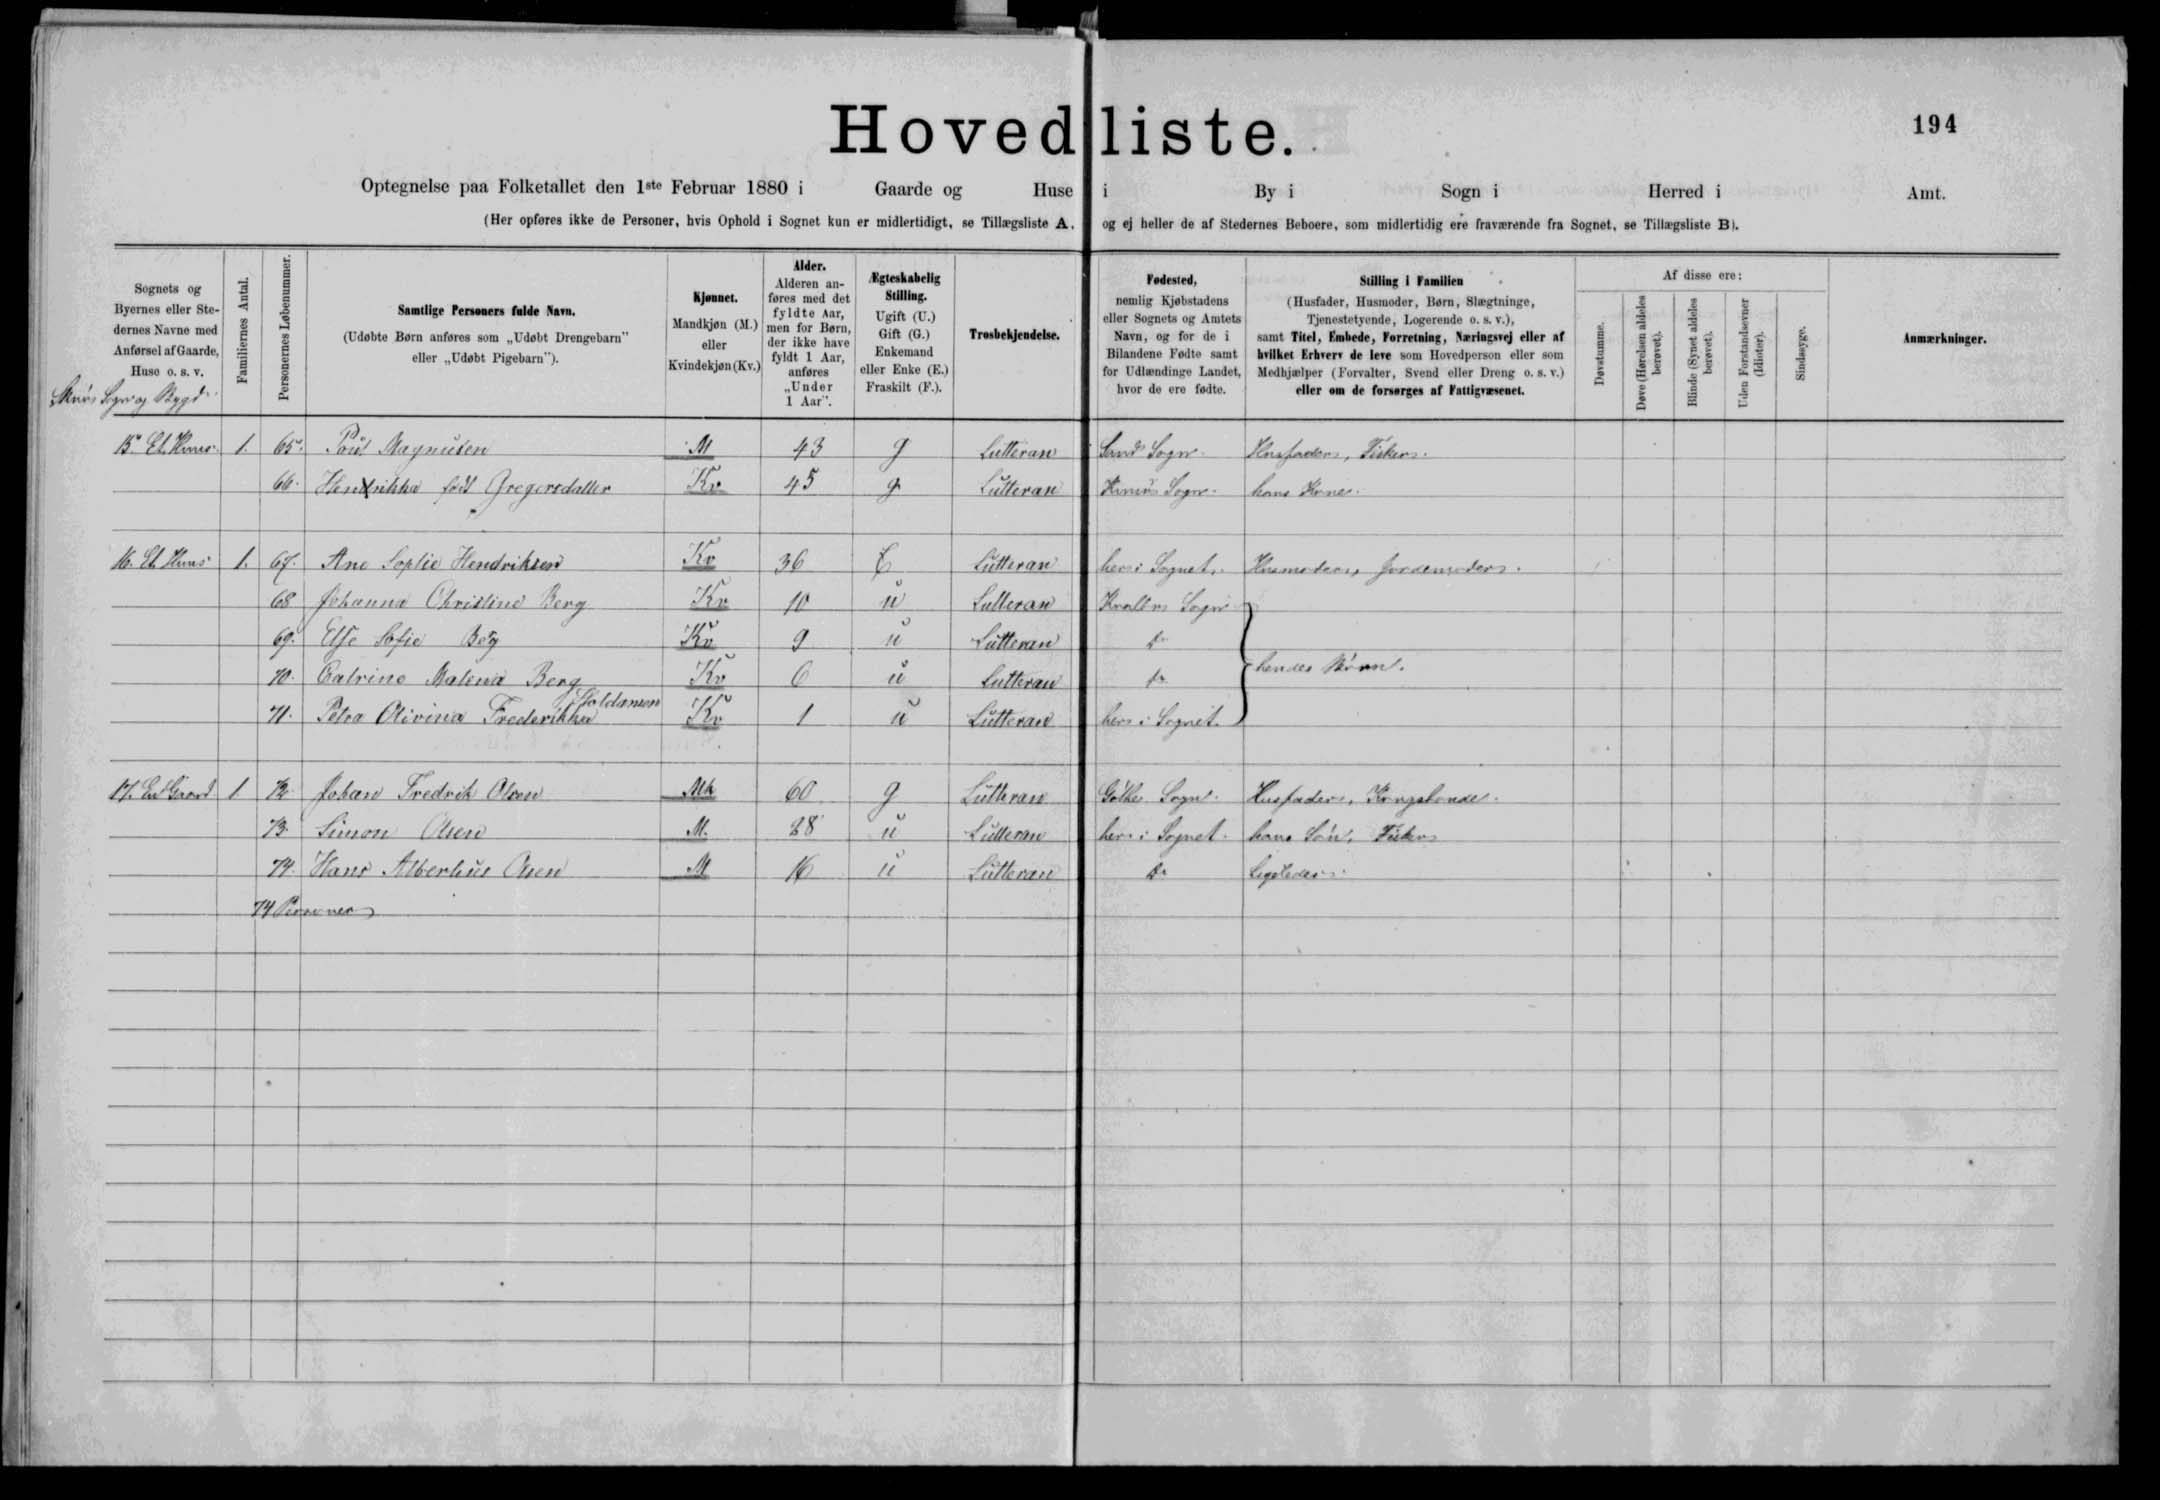 Hovedliste.
194
Optegnelse paa Folketallet den 1ste Februar 1880 i Gaarde og Huse i By i Sogn i Herred i Amt.
(Her opføres ikke de Personer, hvis Ophold i Sognet kun er midlertidigt, se Tillægsliste A, og ej heller de af Stedernes Beboere, som midlertidig ere fraværende fra Sognet, se Tillægsliste B).
Sognets og
Byernes eller Ste-
dernes Navne med
Anførsel af Gaarde,
Huse o. s. v.
Familiernes Antal.
Personernes Løbenummer.
Samtlige Personers fulde Navn.
(Udøbte Børn anføres som „Udøbt Drengebarn"
eller „Udøbt Pigebarn").
Kjønnet.
Mandkjøn (M.)
eller
Kvindekjøn (Kv.)
Alder.
Alderen an-
føres med det
fyldte Aar,
men for Børn,
der ikke have
fyldt 1 Aar,
anføres
„Under
1 Aar".
Ægteskabelig
Stilling.
Ugift (U.)
Gift (G.)
Enkemand
eller Enke (E.)
Fraskilt (F.).
Trosbekjendelse.
Fødested,
nemlig Kjøbstadens
eller Sognets og Amtets
Navn, og for de i
Bilandene Fødte samt
for Udlændinge Landet,
hvor de ere fødte.
Stilling i Familien
(Husfader, Husmoder, Børn, Slægtninge,
Tjenestetyende, Logerende o. s. v.),
samt Titel, Embede, Forretning, Næringsvej eller af
hvilket Erhverv de leve som Hovedperson eller som
Medhjælper (Forvalter, Svend eller Dreng o. s. v.)
eller om de forsørges af Fattigvæsenet.
Af disse ere:
Døvstumme.
Døve (Hørelsen aldeles
berøvet).
Blinde (Synet aldeles
berøvet).
Uden Forstandsevner
(Idioter).
Sindssyge.
Anmærkninger.
Sogn og Bygd
15. Et Huus 1. 65. Poul Magnusen M 43 g Lutteran Sand Sogn. Husfader, Fisker.
66. Hendrikka født Gregersdatter Kv 45 g Lutteran Sogn. hans Kone.
16. Et Huus 1. 67. Ane Sophie Hendriksen Kv 36 E Lutteran her i Sognet. Husmoder, Jordemoder.
68 Johanna Christine Berg Kv 10 u Lutteran Kvalbø Sogn
69. Else Sofie Berg Kv 9 u Lutteran do
70. Catrine Malena Berg Kv 6 u Lutteran do hendes Børn.
71. Petra Olivina Frederikka Joldansen Kv 1 u Lutteran her i Sognet.
17. En Gaard 1 72. Johan Fredrik Olsen Mk 60 g Lutteran Göthe Sogn. Husfader, Kongsbonde.
73. Simon Olsen M. 28 u Lutteran her i Sognet. hans Søn, Fisker
74. Hans Albertius Olsen M 16 u Lutteran do Ligeledes
74 Personer